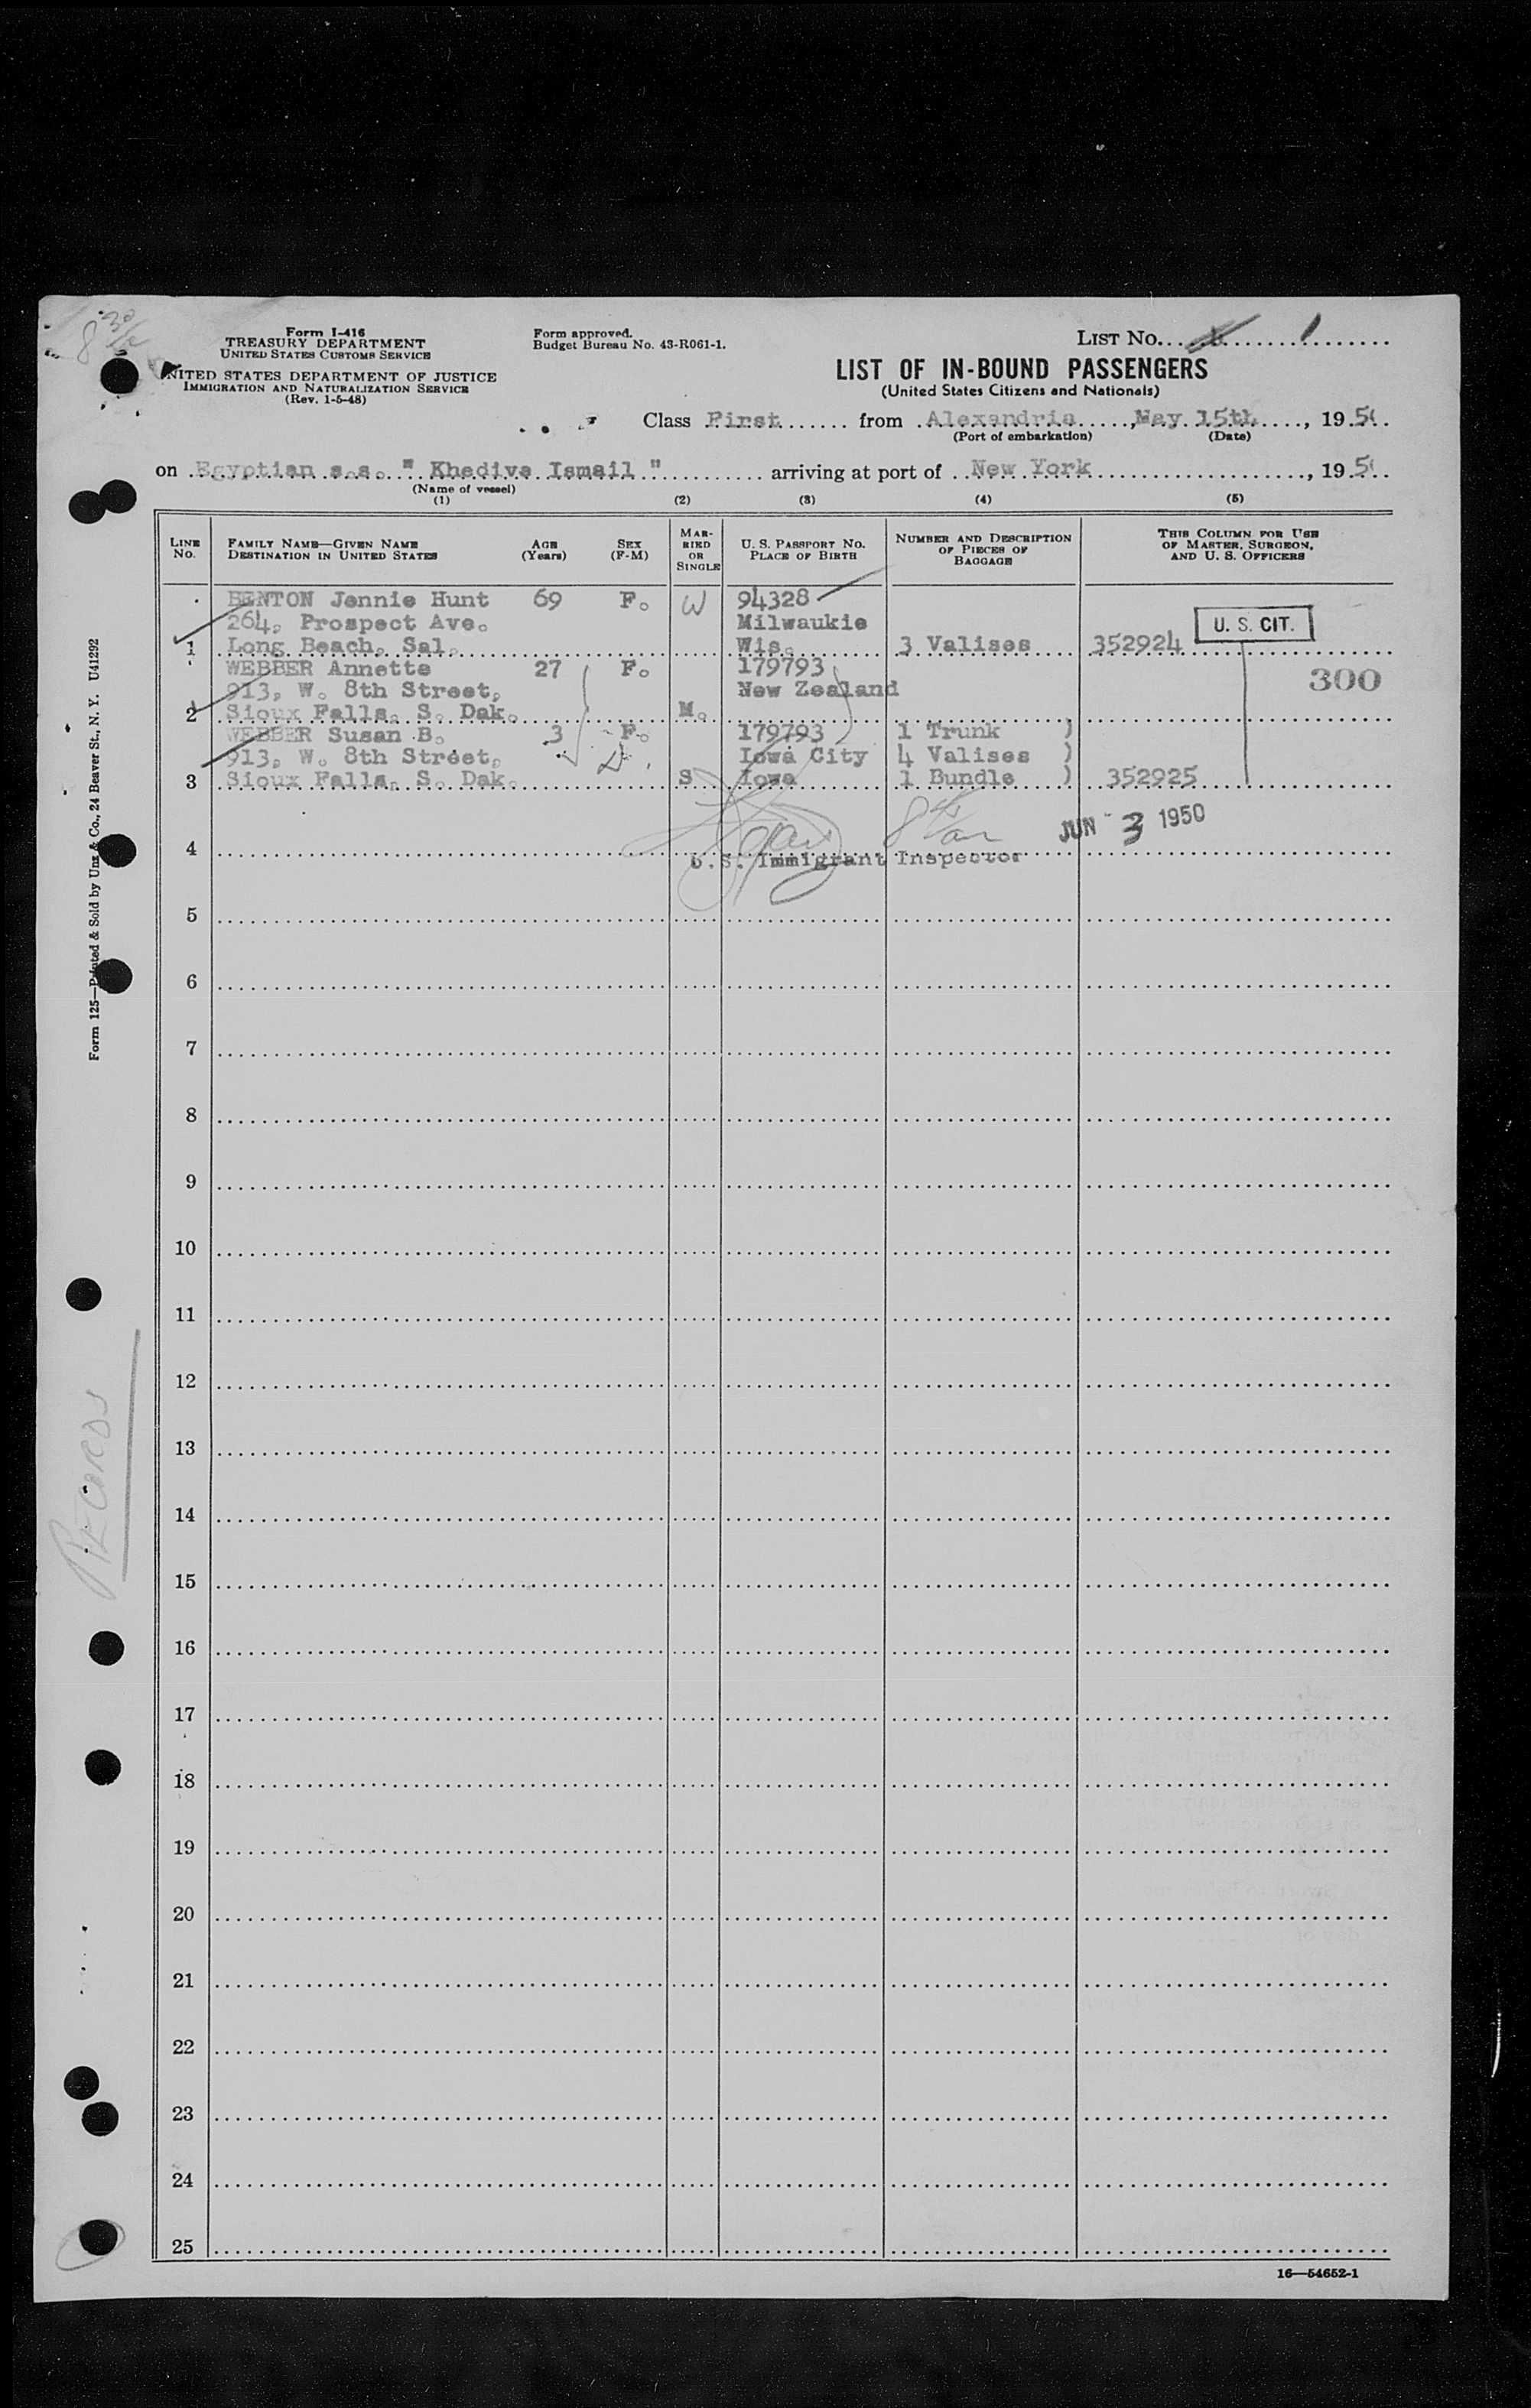 Form I-416
TREASURY DEPARTMENT
UNITED STATES CUSTOMS SERVICE
UNITED STATES DEPARTMENT OF JUSTICE
IMMIGRATION AND NATURALIZATION SERVICE
(Rev. 1-5-48)
Form approved.
Budget Bureau No. 43-R061-1.
LIST No. 1
LIST OF IN-BOUND PASSENGERS
(United States Citizens and Nationals)
Class First from Alexandria, May 15th, 195
(Port of embarkation) (Date)
on Egyptian s.s. " Khedive Ismail " arriving at port of New York, 195
(Name of vessel)
(1) (2) (3) (4) (5)
LINE No. FAMILY NAME—GIVEN NAME DESTINATION IN UNITED STATES AGE (Years) SEX (F-M) MARRIED OR SINGLE U. S. PASSPORT NO. PLACE OF BIRTH NUMBER AND DESCRIPTION OF PIECES OF BAGGAGE THIS COLUMN FOR USE OF MASTER, SURGEON, AND U. S. OFFICERS
BENTON Jennie Hunt 69 F. W 94328
264, Prospect Ave. Milwaukie U. S. CIT.
1 Long Beach, Sal. Wis. 3 Valises 352924
WEBBER Annette 27 F. 179793 300
913, W. 8th Street, New Zealand
2 Sioux Falls, S. Dak. M.
WEBBER Susan B. 3 F. 179793 1 Trunk )
913, W. 8th Street, Iowa City 4 Valises )
3 Sioux Falls, S. Dak. S Iowa 1 Bundle ) 352925
JUN 3 1950
4 U.S. Immigrant Inspector
5
6
7
8
9
10
11
12
13
14
15
16
17
18
19
20
21
22
23
24
25
16—54652-1
Form 125—Printed & Sold by Unz & Co., 24 Beaver St., N. Y. U41292
RECORDS